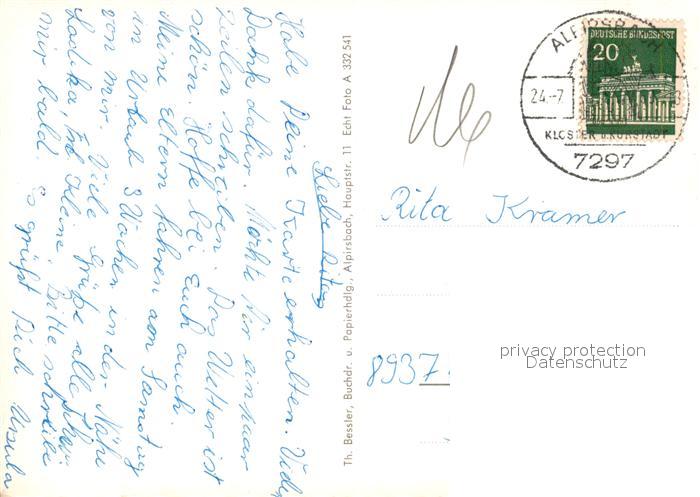 Liebe Rita,
Habe Deine Karte erhalten. Viel
Dank dafür. Möchte Dir ein paar
Zeilen schreiben. Das Wetter ist
schön. Hoffe bei Euch auch.
Meine Eltern fahren am Samstag
in Urlaub 3 Wochen in der Nähe
von mir. Viele Grüße alle
Bitte schreibe
mir bald. Es grüßt Dich Ursula
Th. Bessler, Buchdr. u. Papierhdlg., Alpirsbach, Hauptstr. 11 Echt Foto A 332 541
ALPIRSBACH
24.-7
KLOSTER u. KURSTADT
7297
DEUTSCHE BUNDESPOST
20
Rita Kramer
8937
privacy protection
Datenschutz